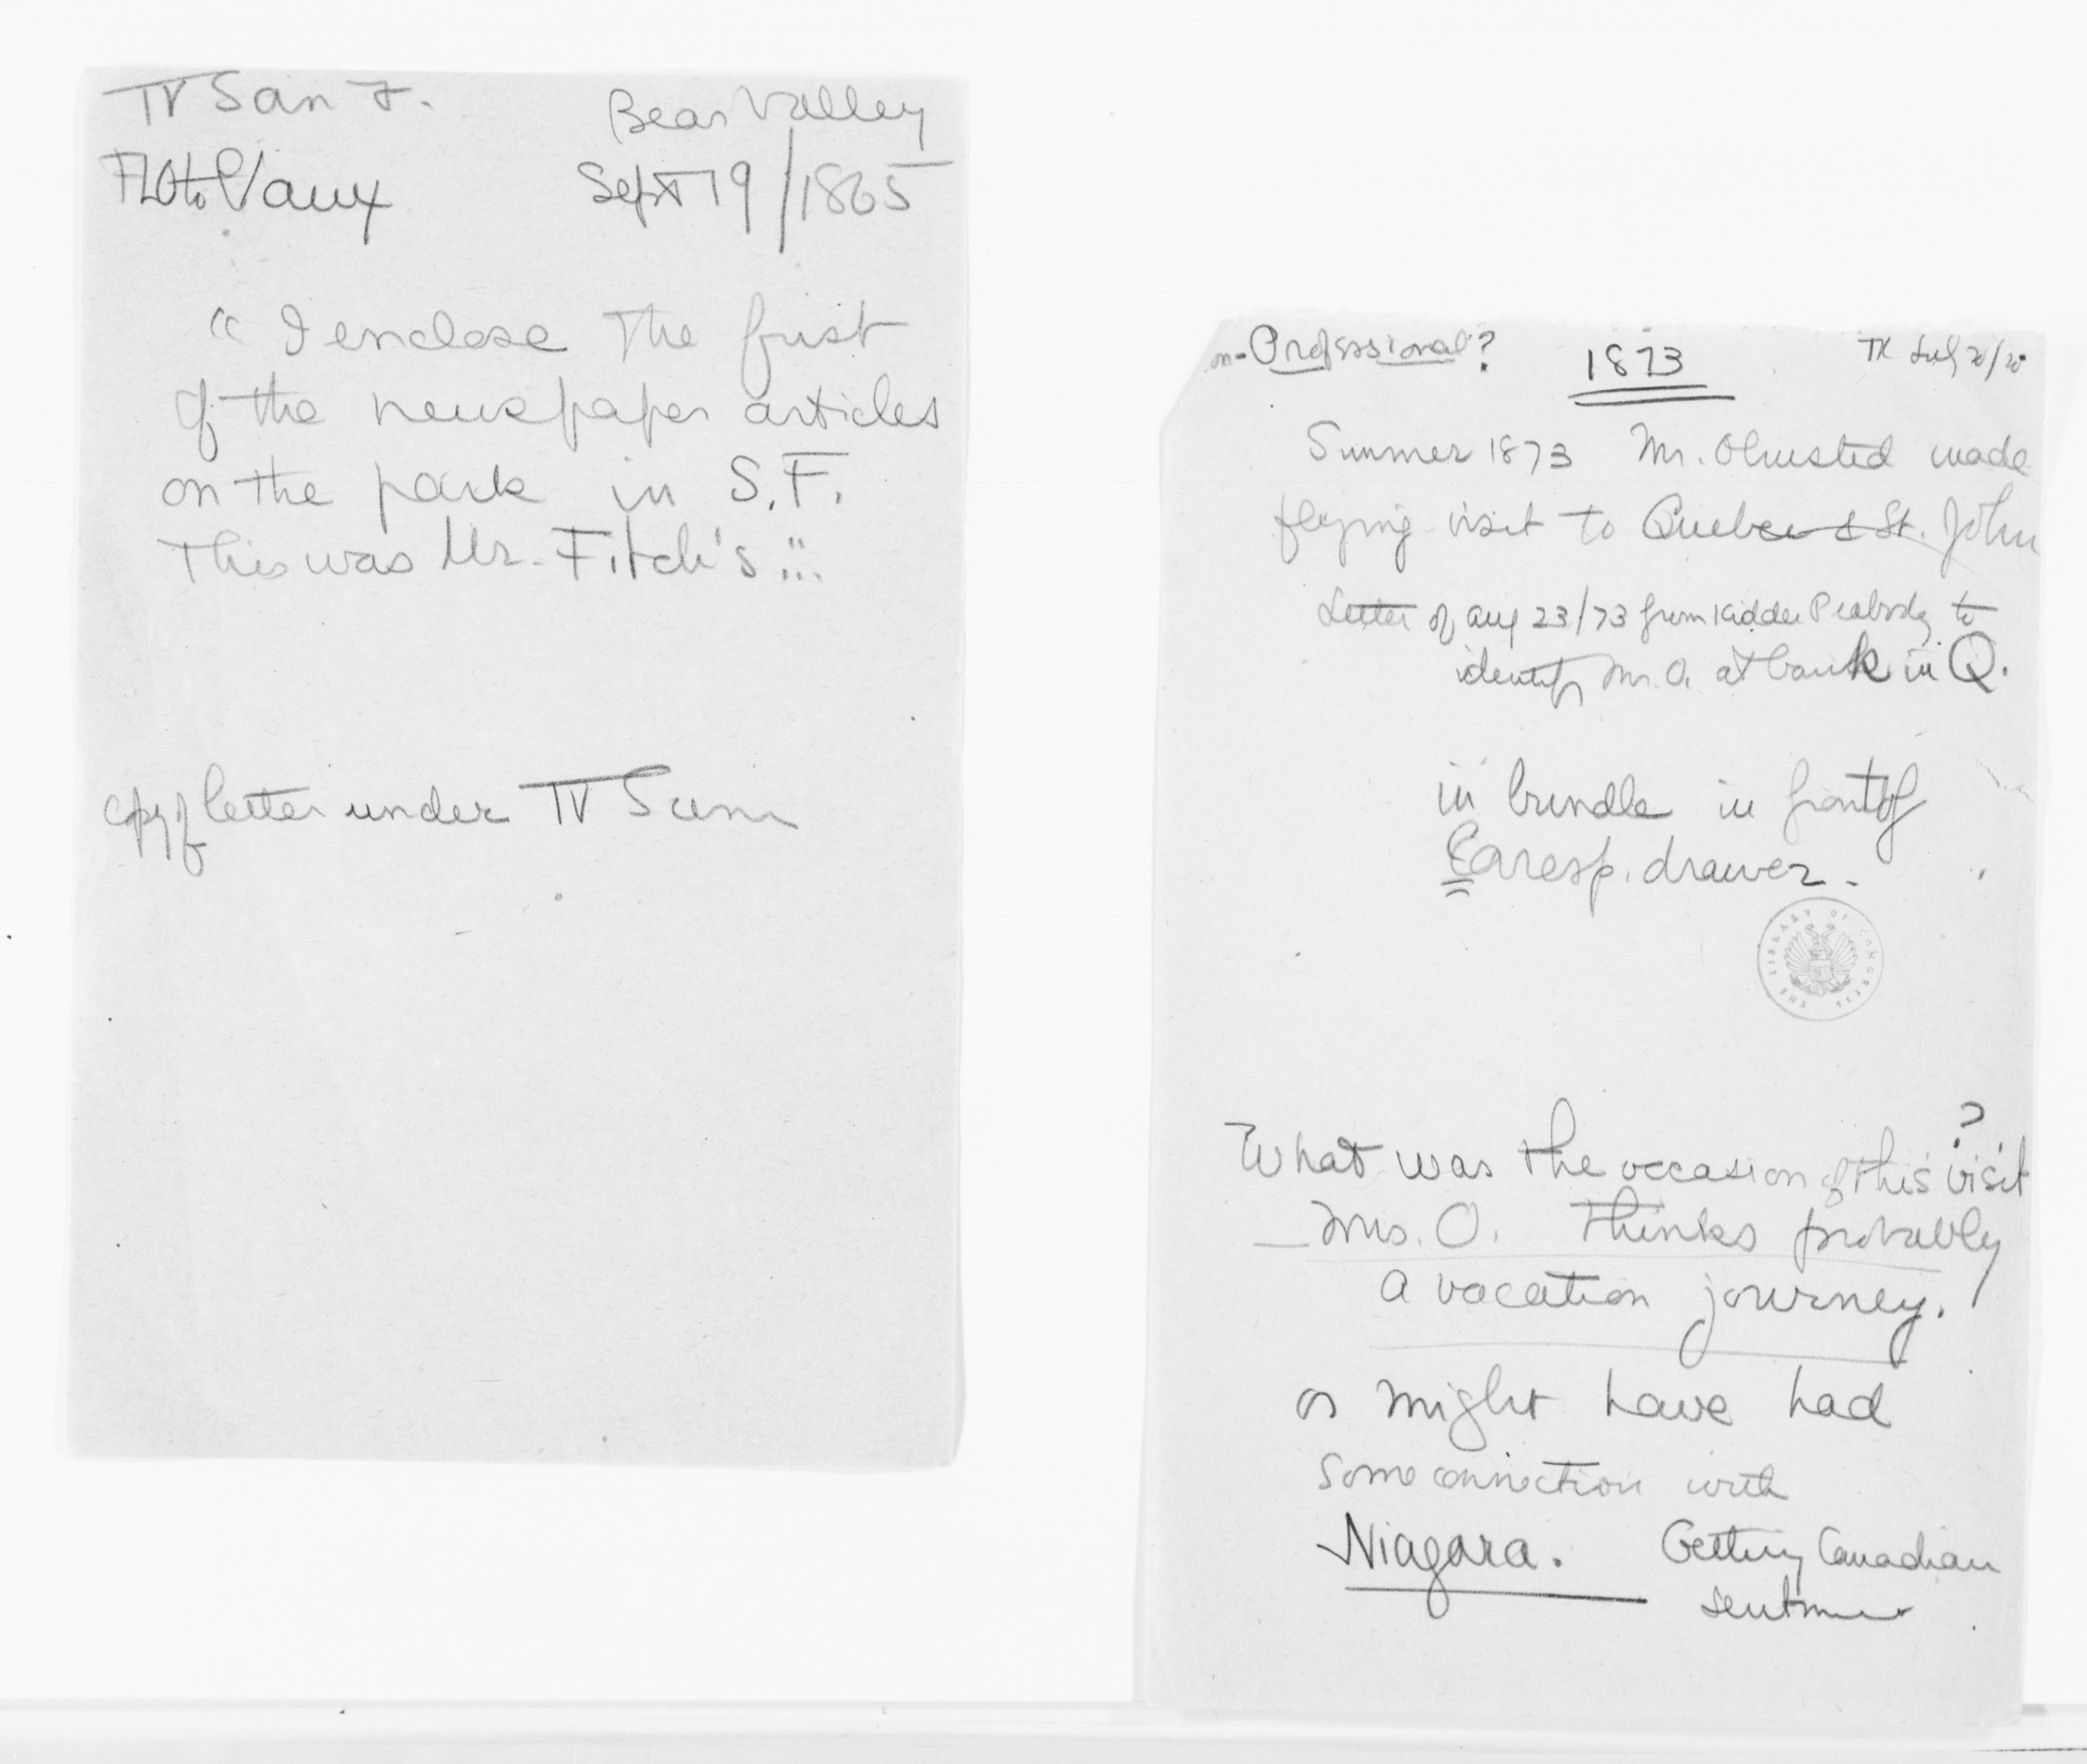 TV San F.
Bear Valley
FLO to Vaux
Sept 19/1865
"I enclose the first
of the newspaper articles
on the park in S.F.
This was Mr. Fitch's :::
copy of letter under TV San
on-Professional?
1873
TK July 20/20
Summer 1873 Mr. Olmsted made
flying visit to Quebec & St. John
Letter of Aug 23/73 from Kidder Peabody to
identify Mr. O. at bank in Q.
in bundle in front of
Corresp. drawer.
THE LIBRARY OF CONGRESS
What was the occasion of this visit?
— Mrs. O. thinks probably
a vacation journey.
or might have had
some connection with
Niagara. Getting Canadian